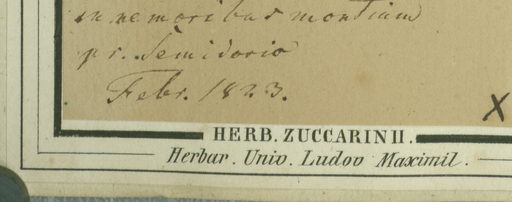 in nemoribus montium
pr. Semidorio
Febr. 1823.
X
HERB. ZUCCARINII.
Herbar. Univ. Ludov Maximil.